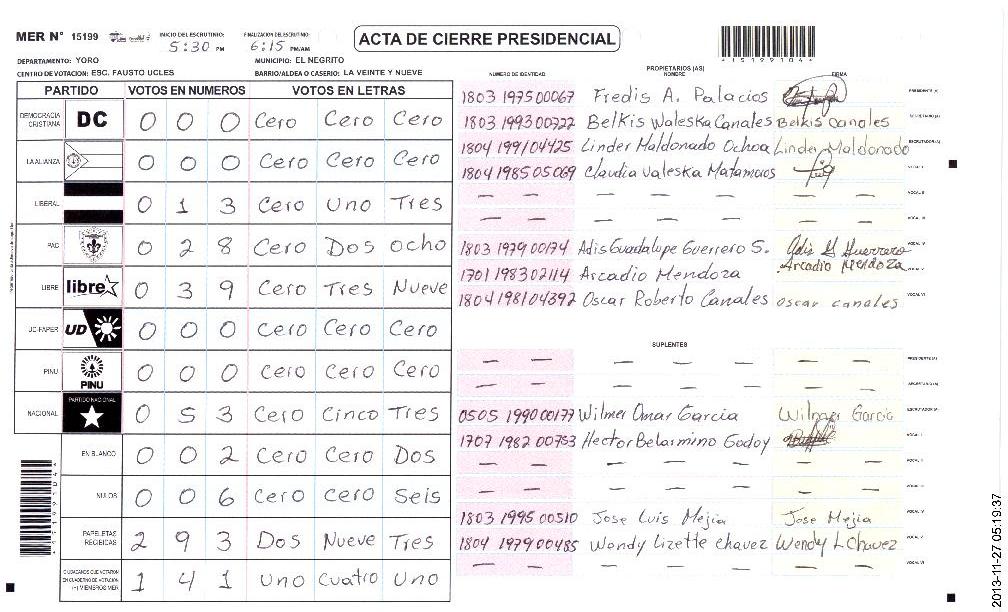 MER N° 15199 INICIO DEL ESCRUTINIO: 5:30 PM FINALIZACION DEL ESCRUTINIO: 6:15 PM/AM
ACTA DE CIERRE PRESIDENCIAL
DEPARTAMENTO: YORO MUNICIPIO: EL NEGRITO
CENTRO DE VOTACION: ESC. FAUSTO UCLES BARRIO/ALDEA O CASERIO: LA VEINTE Y NUEVE
PARTIDO VOTOS EN NUMEROS VOTOS EN LETRAS
DEMOCRACIA CRISTIANA DC 0 0 0 Cero Cero Cero
LA ALIANZA 0 0 0 Cero Cero Cero
LIBERAL 0 1 3 Cero Uno Tres
PAC 0 2 8 Cero Dos ocho
LIBRE libre 0 3 9 Cero Tres Nueve
UD-FAPER UD 0 0 0 Cero Cero Cero
PINU PINU 0 0 0 Cero Cero Cero
NACIONAL PARTIDO NACIONAL 0 5 3 Cero Cinco Tres
EN BLANCO 0 0 2 Cero Cero Dos
NULOS 0 0 6 Cero Cero Seis
PAPELETAS RECIBIDAS 2 9 3 Dos Nueve Tres
CIUDADANOS QUE VOTARON EN CUADERNO DE VOTACION (+) MIEMBROS MER 1 4 1 Uno Cuatro Uno
4 1 5 1 9 9 1 0 4 4
PROPIETARIOS (AS)
NUMERO DE IDENTIDAD NOMBRE FIRMA
1803 1975 00067 Fredis A. Palacios PRESIDENTE (A)
1803 1993 00722 Belkis Waleska Canales Belkis Canales SECRETARIO (A)
1804 1991 04425 Linder Maldonado Ochoa Linder Maldonado ESCRUTADOR (A)
1804 1985 05069 Claudia Valeska Matamoros VOCAL I
— — — — — — — VOCAL II
— — — — — — — VOCAL III
1803 1979 00174 Adis Guadalupe Guerrero S. Adis G Guerrero VOCAL IV
1701 1983 02114 Arcadio Mendoza Arcadio Mendoza VOCAL V
1804 1981 04392 Oscar Roberto Canales oscar canales VOCAL VI
SUPLENTES
— — — — — — — PRESIDENTE (A)
— — — — — — — SECRETARIO (A)
0505 1990 00177 Wilmer Omar Garcia Wilmer Garcia ESCRUTADOR (A)
1707 1982 00753 Hector Belarmino Godoy VOCAL I
— — — — — — — VOCAL II
— — — — — — — VOCAL III
1803 1995 00510 Jose Luis Mejia Jose Mejia VOCAL IV
1804 1979 00485 Wendy Lizette chavez Wendy L Chavez VOCAL V
— — — — — — — VOCAL VI
2013-11-27 05:19:37